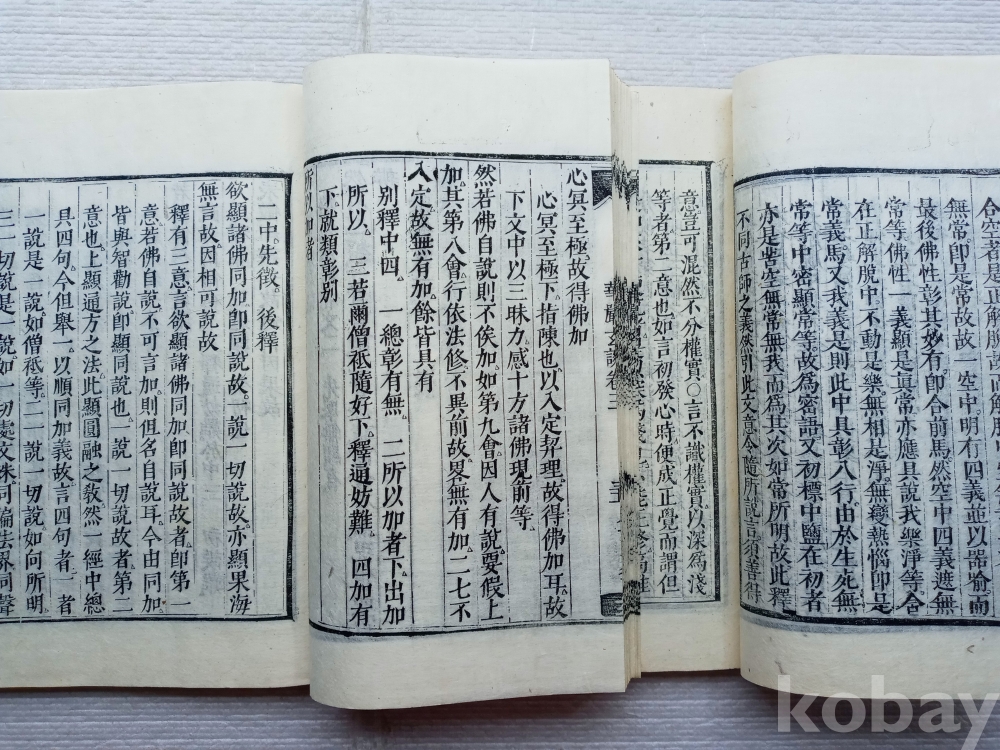 合空者上正解脫
無常即是常故故一空中明有四義並以器喻而
最後佛性彰其妙有即合前馬然空中四義遮無
常等佛性一義顯是眞常亦應具說我樂淨等合
在正解脫中不動是樂無相是淨無變熱惱即是
常義馬又我義是則此中具彰八行由於生死無
常等中密顯常等故爲密語又初標中鹽在初者
亦是苦空無常無我而爲其次如常所明故此釋
不同古師之義然引此文意令隨所說言須善得
意豈可混然不分權實○言不識權實以深爲淺
等者第二意也如言初發心時便成正覺而謂但
華嚴玄談卷三
心冥至極故得佛加
心冥至極下指陳也以入定契理故得佛加耳故
下文中以三昧力感十方諸佛現前等
然若佛自說則不俟加如第九會因人有說要假上
加其第八會行依法修不異前故畧無有加二七不
入定故無有加餘皆具有
別釋中四一總彰有無二所以加者下出加
所以三若爾僧祗隨好下釋通妨難四加有
下就類彰別
所以加者
二中先徵後釋
欲顯諸佛同加即同說故一說一切說故亦顯果海
無言故因相可說故
釋有三意言欲顯諸佛同加即同說故者即第一
意若佛自說不可言加則但各自說耳今由同加
皆與智勸說即顯同說也一說一切說故者第二
意也上顯通方之法此顯圓融之教然一經中總
具四句今但舉一以順同加義故言四句者一者
一說是一說如僧祗等二一說一切說如向所明
三一切說是一說如一切處文殊同徧法界同聲